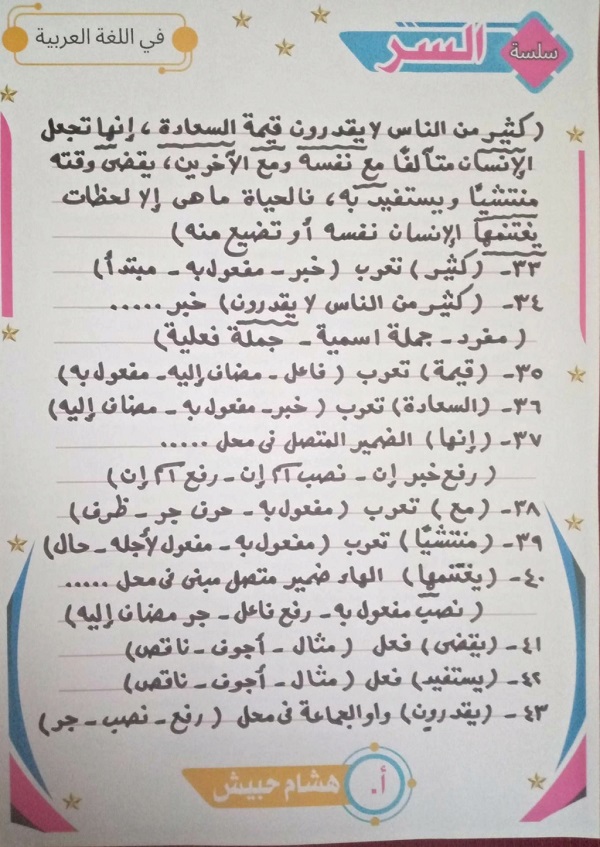 في اللغة العربية
سلسة
السر
( كثير من الناس لا يقدرون قيمة السعادة ، إنها تجعل
الإنسان متآلفًا مع نفسه ومع الآخرين، يقضى وقته
منتشيًا ويستفيد به ، فالحياة ما هى إلا لحظات
يغتنمها الإنسان نفسه أو تضيع منه )
٣٣- ( كثير ) تعرب ( خبر - مفعول به - مبتدأ )
٣٤- ( كثير من الناس لا يقدرون ) خبر .....
( مفرد - جملة اسمية - جملة فعلية )
٣٥- ( قيمة ) تعرب ( فاعل - مضاف إليه - مفعول به )
٣٦- ( السعادة ) تعرب ( خبر - مفعول به - مضاف إليه )
٣٧- ( إنها ) الضمير المتصل فى محل .....
( رفع خبر إن - نصب اسم إن - رفع اسم إن )
٣٨- ( مع ) تعرب ( مفعول به - حرف جر - ظرف )
٣٩- ( منتشيًا ) تعرب ( مفعول به - مفعول لأجله - حال )
٤٠- ( يغتنمها ) الهاء ضمير متصل مبنى فى محل .....
( نصب مفعول به - رفع فاعل - جر مضاف إليه )
٤١- ( يقضى ) فعل ( مثال - أجوف - ناقص )
٤٢- ( يستفيد ) فعل ( مثال - أجوف - ناقص )
٤٣- ( يقدرون ) واو الجماعة فى محل ( رفع - نصب - جر )
أ. هشام حبيش